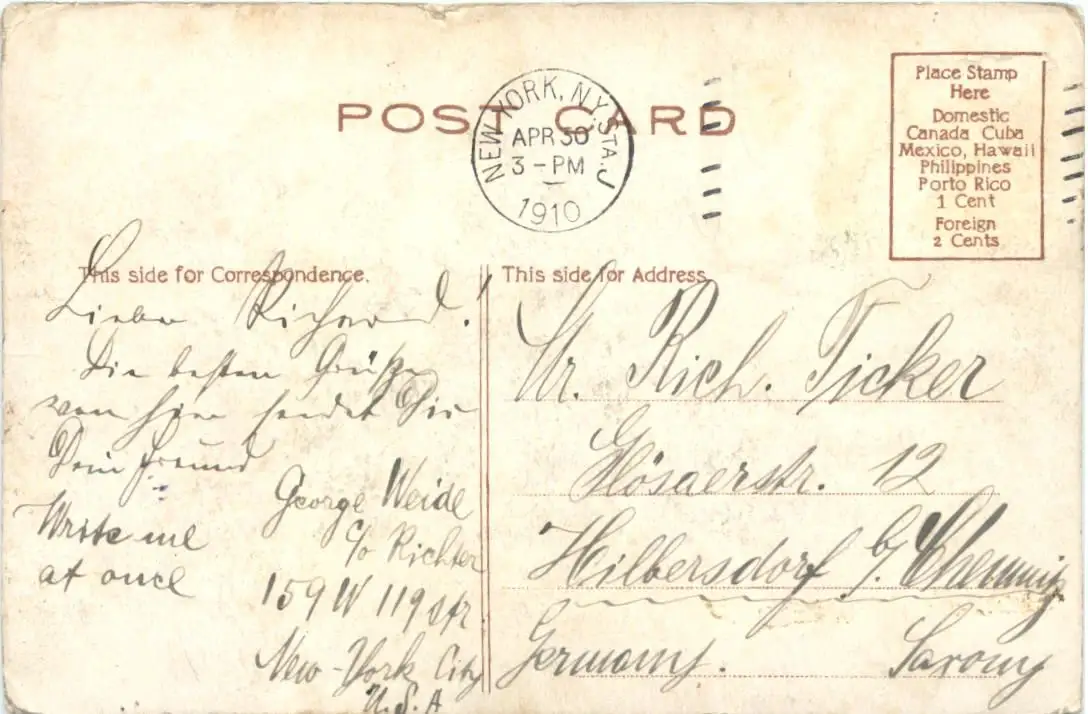 POST CARD
NEW YORK, N.Y. STA. J
APR 30
3 - PM
1910
Place Stamp
Here
Domestic
Canada Cuba
Mexico, Hawaii
Philippines
Porto Rico
1 Cent
Foreign
2 Cents
This side for Correspondence.
Lieber Richard!
Die besten Grüße
von hier sendet Dir
Dein Freund
George Weide
c/o Richter
159 W 119 str
New-York City
U.S.A
Write me
at once
This side for Address.
Mr. Rich. Ticker
Glösaerstr. 12
Hilbersdorf b/ Chemnitz
Germany. Saxony